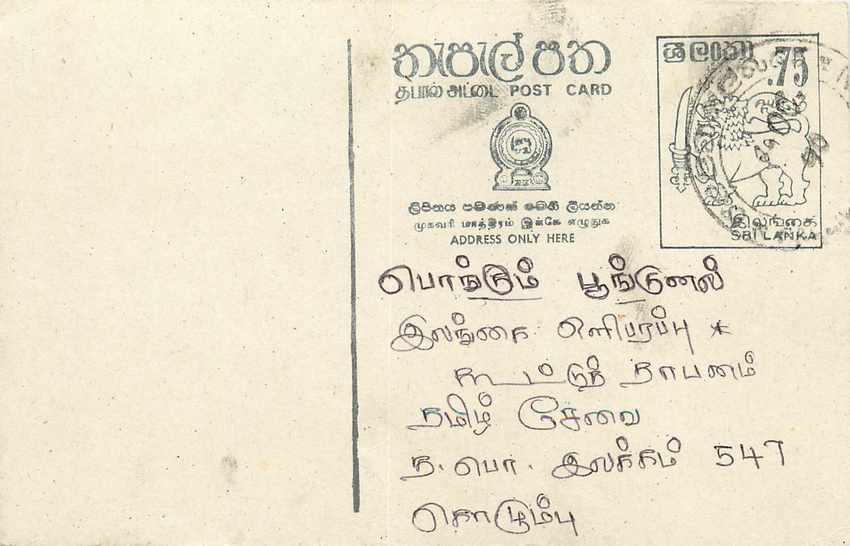 තැපැල් පත
தபால் அட்டை POST CARD
ශ්‍රී ලංකා
.75
இலங்கை
SRI LANKA
ලිපිනය පමණක් මෙහි ලියන්න
முகவரி மாத்திரம் இங்கே எழுதுக
ADDRESS ONLY HERE
பொங்கும் பூங்டுனல்
இலங்கை ஒளிபரப்பு *
கூட்டுத் தாபனம்
தமிழ் சேவை
த. பொ. இலக்கம் 547
கொழும்பு